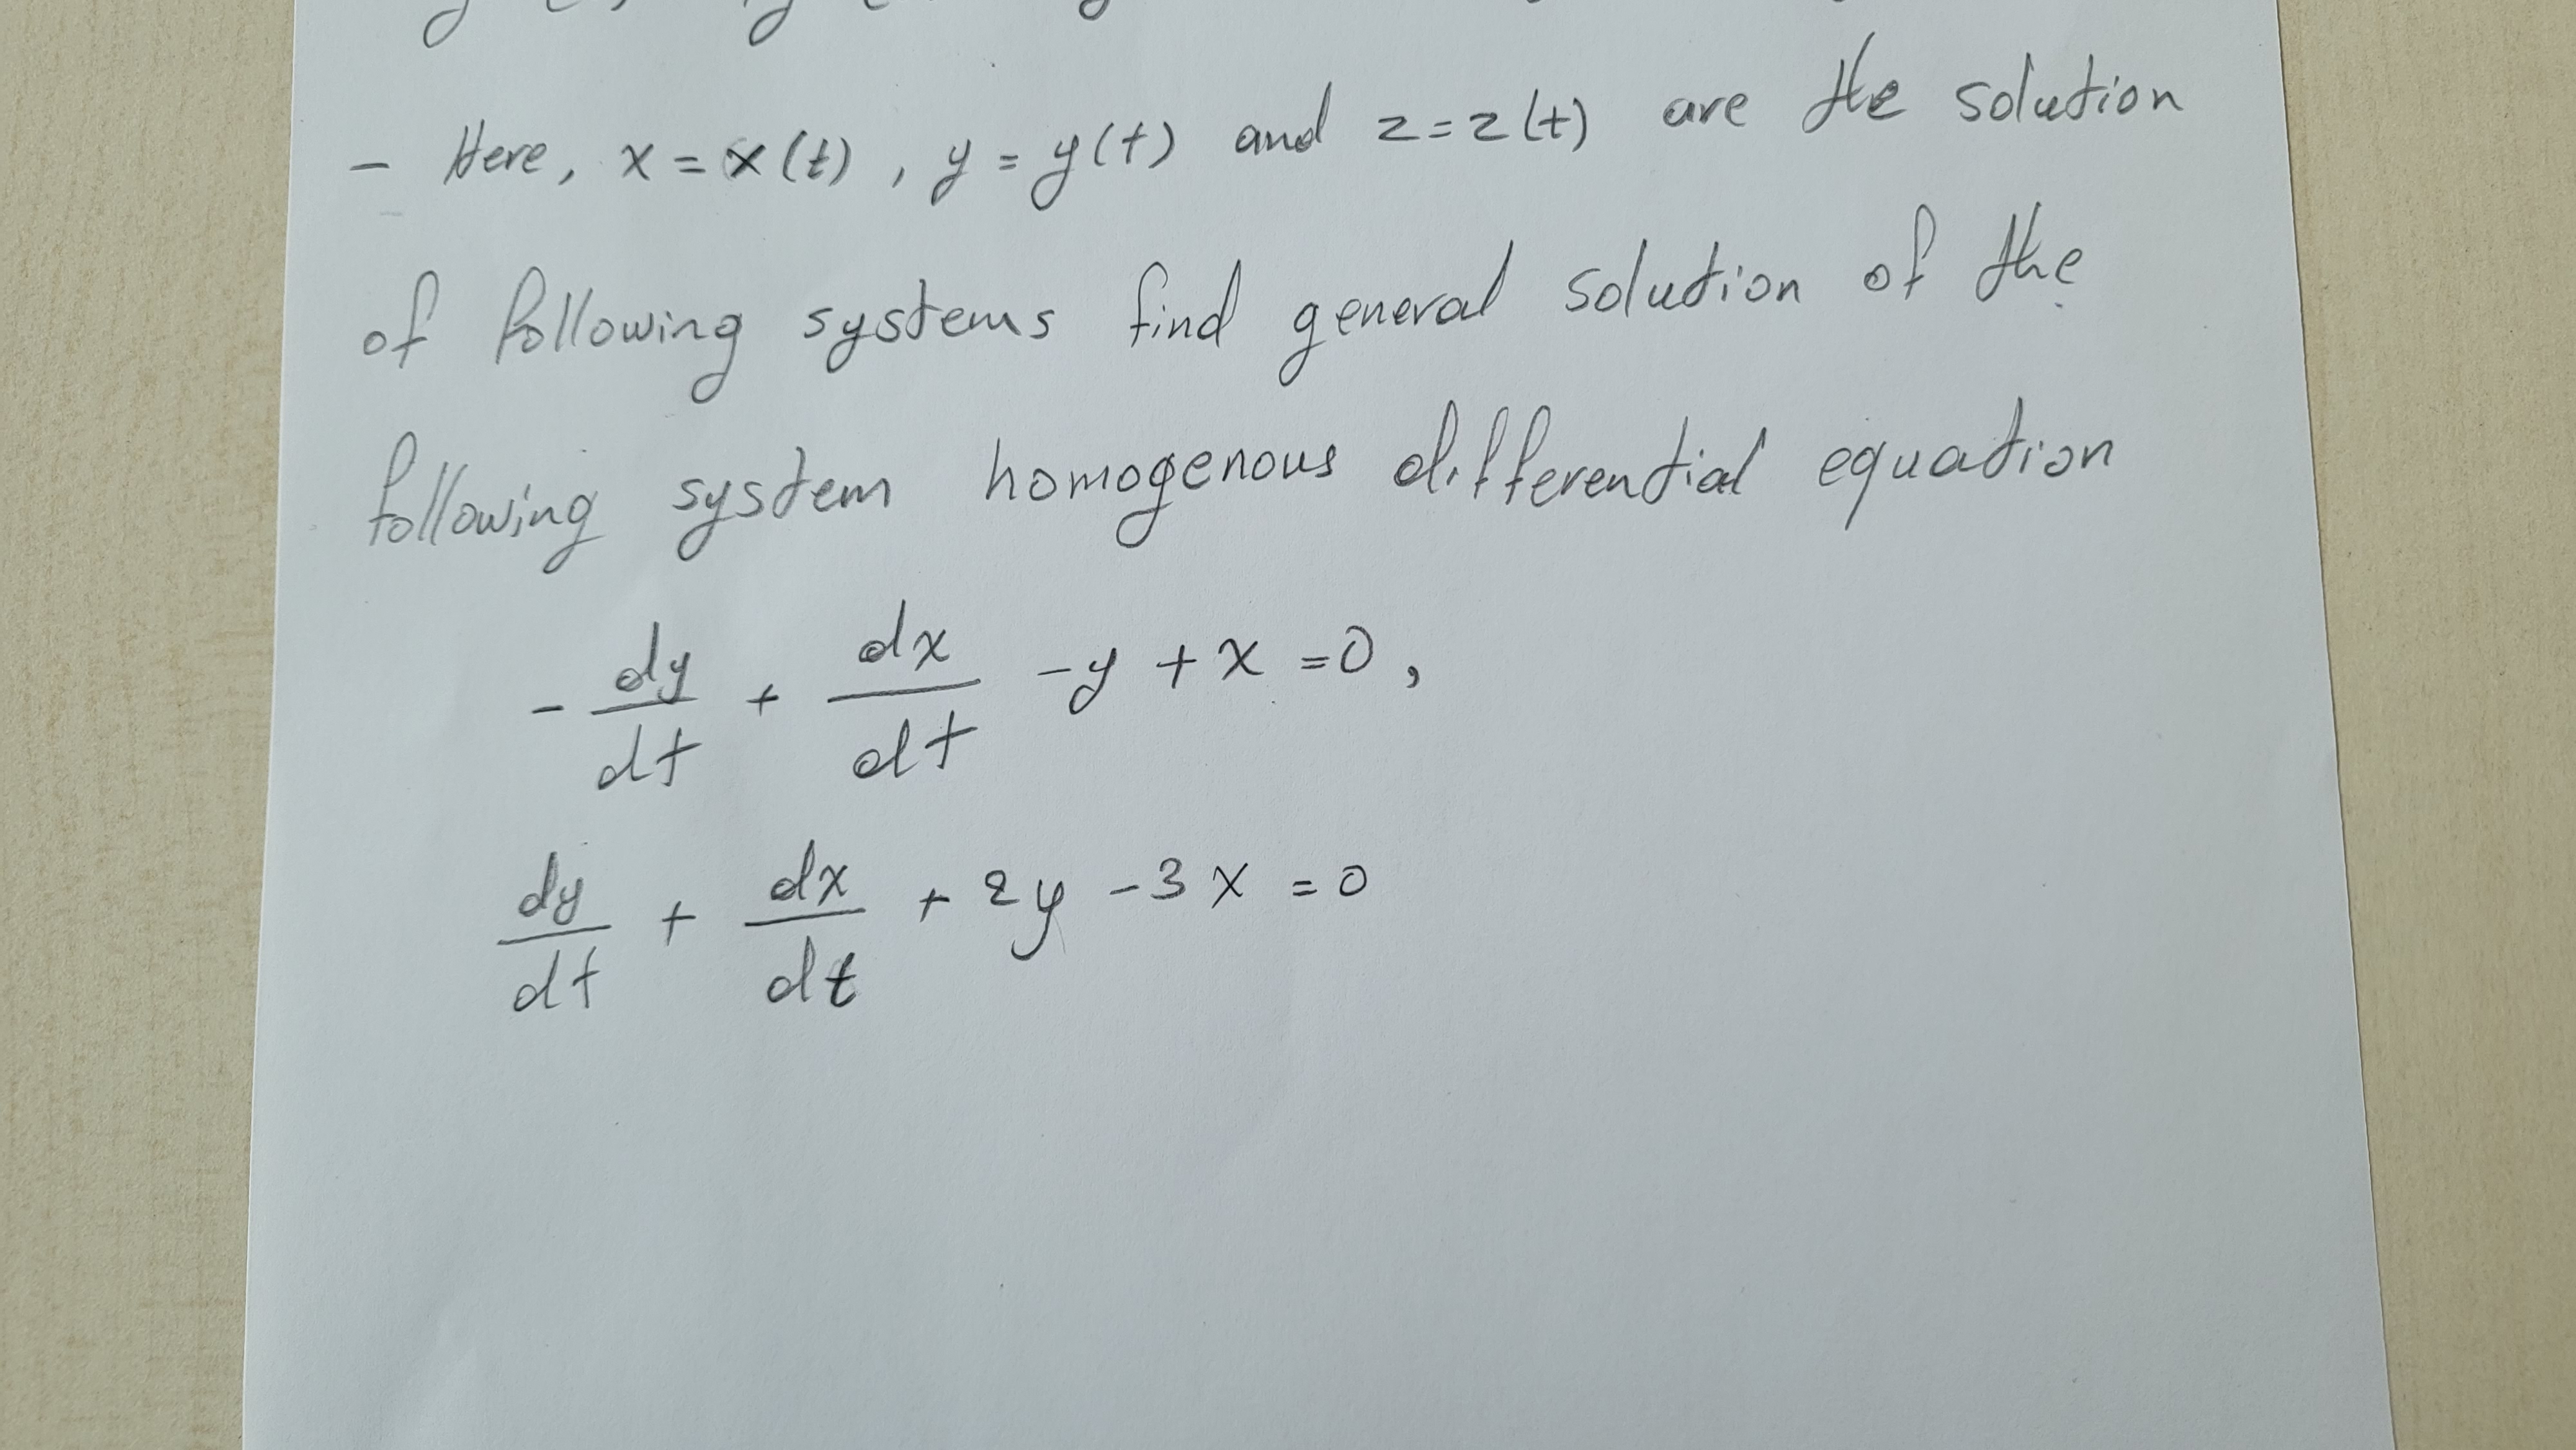 - Here, x = x(t), y = y(t) and z = z(t) are the solution
of following systems find general solution of the
following system homogenous differential equation
- dy/dt + dx/dt - y + x = 0,
dy/dt + dx/dt + 2y - 3x = 0